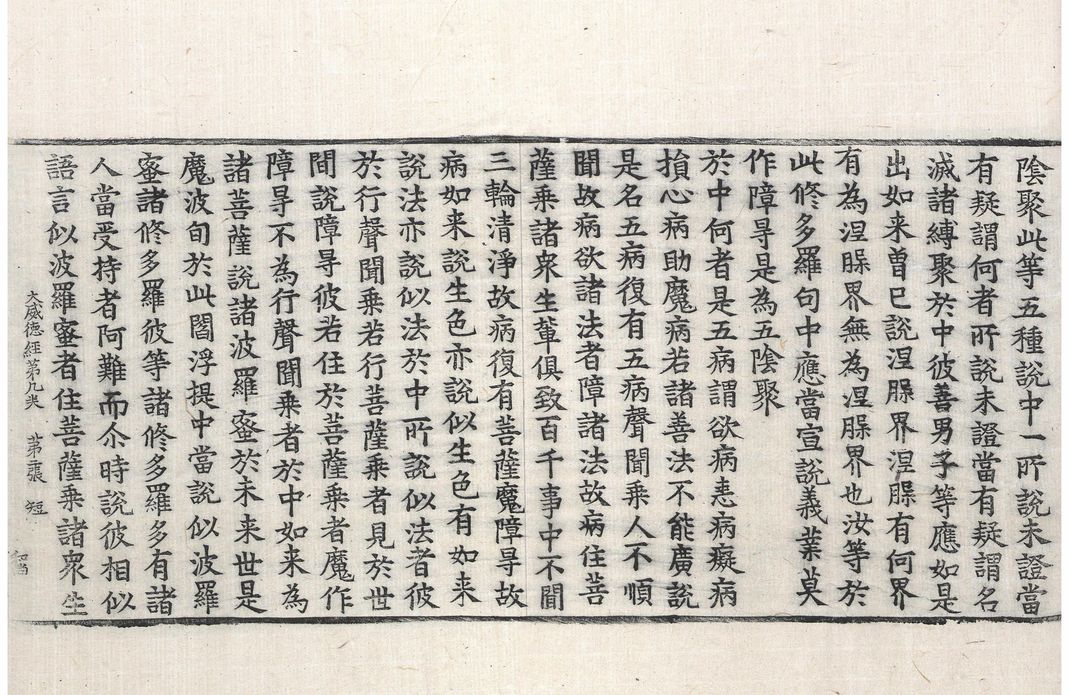 陰聚此等五種說中一所說未證當
有疑謂何者所說未證當有疑謂名
滅諸縛聚於中彼善男子等應如是
出如来曾已說涅槃界涅槃有何界
有為涅槃界無為涅槃界也汝等於
此修多羅句中應當宣說義業莫
作障㝵是為五陰聚
於中何者是五病謂欲病恚病癡病
損心病助魔病若諸善法不能廣說
是名五病復有五病聲聞乘人不順
聞故病欲諸法者障諸法故病住菩
薩乘諸衆生輩俱致百千事中不聞
三輪清淨故病復有菩薩魔障㝵故
病如来說生色亦說似生色有如来
說法亦說似法於中所說似法者彼
於行聲聞乘若行菩薩乘者見於世
間說障㝵彼若住於菩薩乘者魔作
障㝵不為行聲聞乘者於中如来為
諸菩薩說諸波羅蜜於未来世是
魔波旬於此閻浮提中當說似波羅
蜜諸修多羅彼等諸修多羅多有諸
人當受持者阿難而尒時說彼相似
語言似波羅蜜者住菩薩乘諸衆生
大威德經第九 第張 短